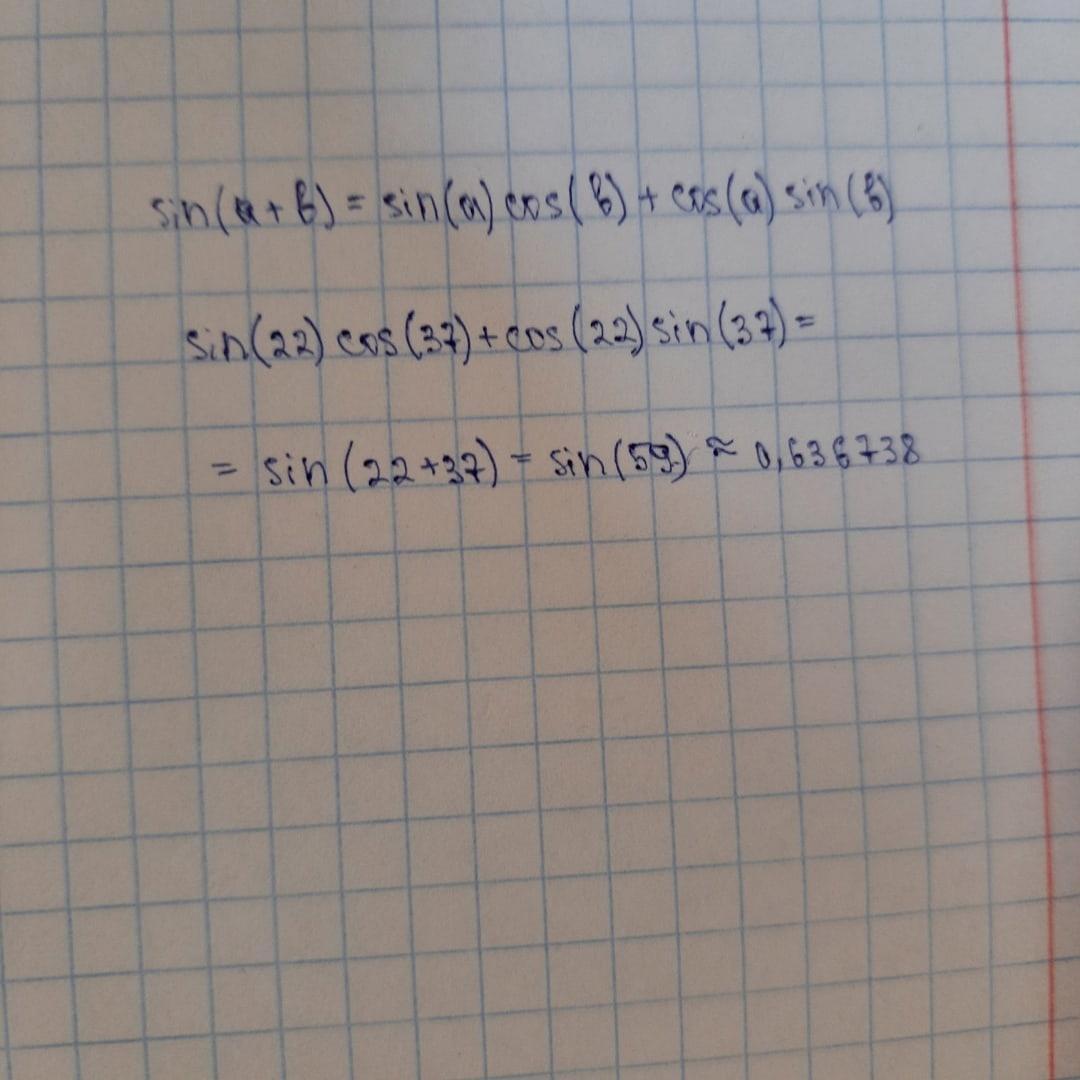 sin(a+b) = sin(a) cos(b) + cos(a) sin(b)
sin(22) cos(37) + cos(22) sin(37) =
= sin (22+37) = sin(59) ≈ 0,636738